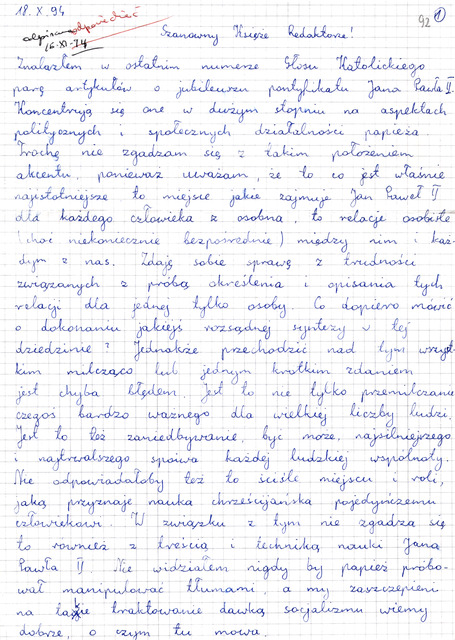 18. X. 94
odpowiedzieć
16-XI-94
92 1
Szanowny Księże Redaktorze!
Znalazłem w ostatnim numerze Głosu Katolickiego
parę artykułów o jubileuszu pontyfikatu Jana Pawła II.
Koncentrują się one w dużym stopniu na aspektach
politycznych i społecznych działalności papieża.
Trochę nie zgadzam się z takim położeniem
akcentu, ponieważ uważam, że to co jest właśnie
najistotniejsze to miejsce jakie zajmuje Jan Paweł II
dla każdego człowieka z osobna, to relacje osobiste
(choć niekoniecznie bezpośrednie) między nim i każ-
dym z nas. Zdaję sobie sprawę z trudności
związanych z próbą określenia i opisania tych
relacji dla jednej tylko osoby. Co dopiero mówić
o dokonaniu jakiejś rozsądnej syntezy w tej
dziedzinie? Jednakże przechodzić nad tym wszyst-
kim milcząco lub jednym krótkim zdaniem
jest chyba błędem. Jest to nie tylko przemilczanie
czegoś bardzo ważnego dla wielkiej liczby ludzi.
Jest to też zaniedbywanie, być może, najsilniejszego
i najtrwalszego spoiwa każdej ludzkiej wspólnoty.
Nie odpowiadałoby też to ściśle miejscu i roli,
jaką przyznaje nauka chrześcijańska pojedyńczemu
człowiekowi. W związku z tym nie zgadza się
to również z treścią i techniką nauki Jana
Pawła II. Nie widziałem nigdy by papież próbo-
wał manipulować tłumami, a my zaszczepieni
na takie traktowanie dawką socjalizmu wiemy
dobrze, o czym tu mowa.